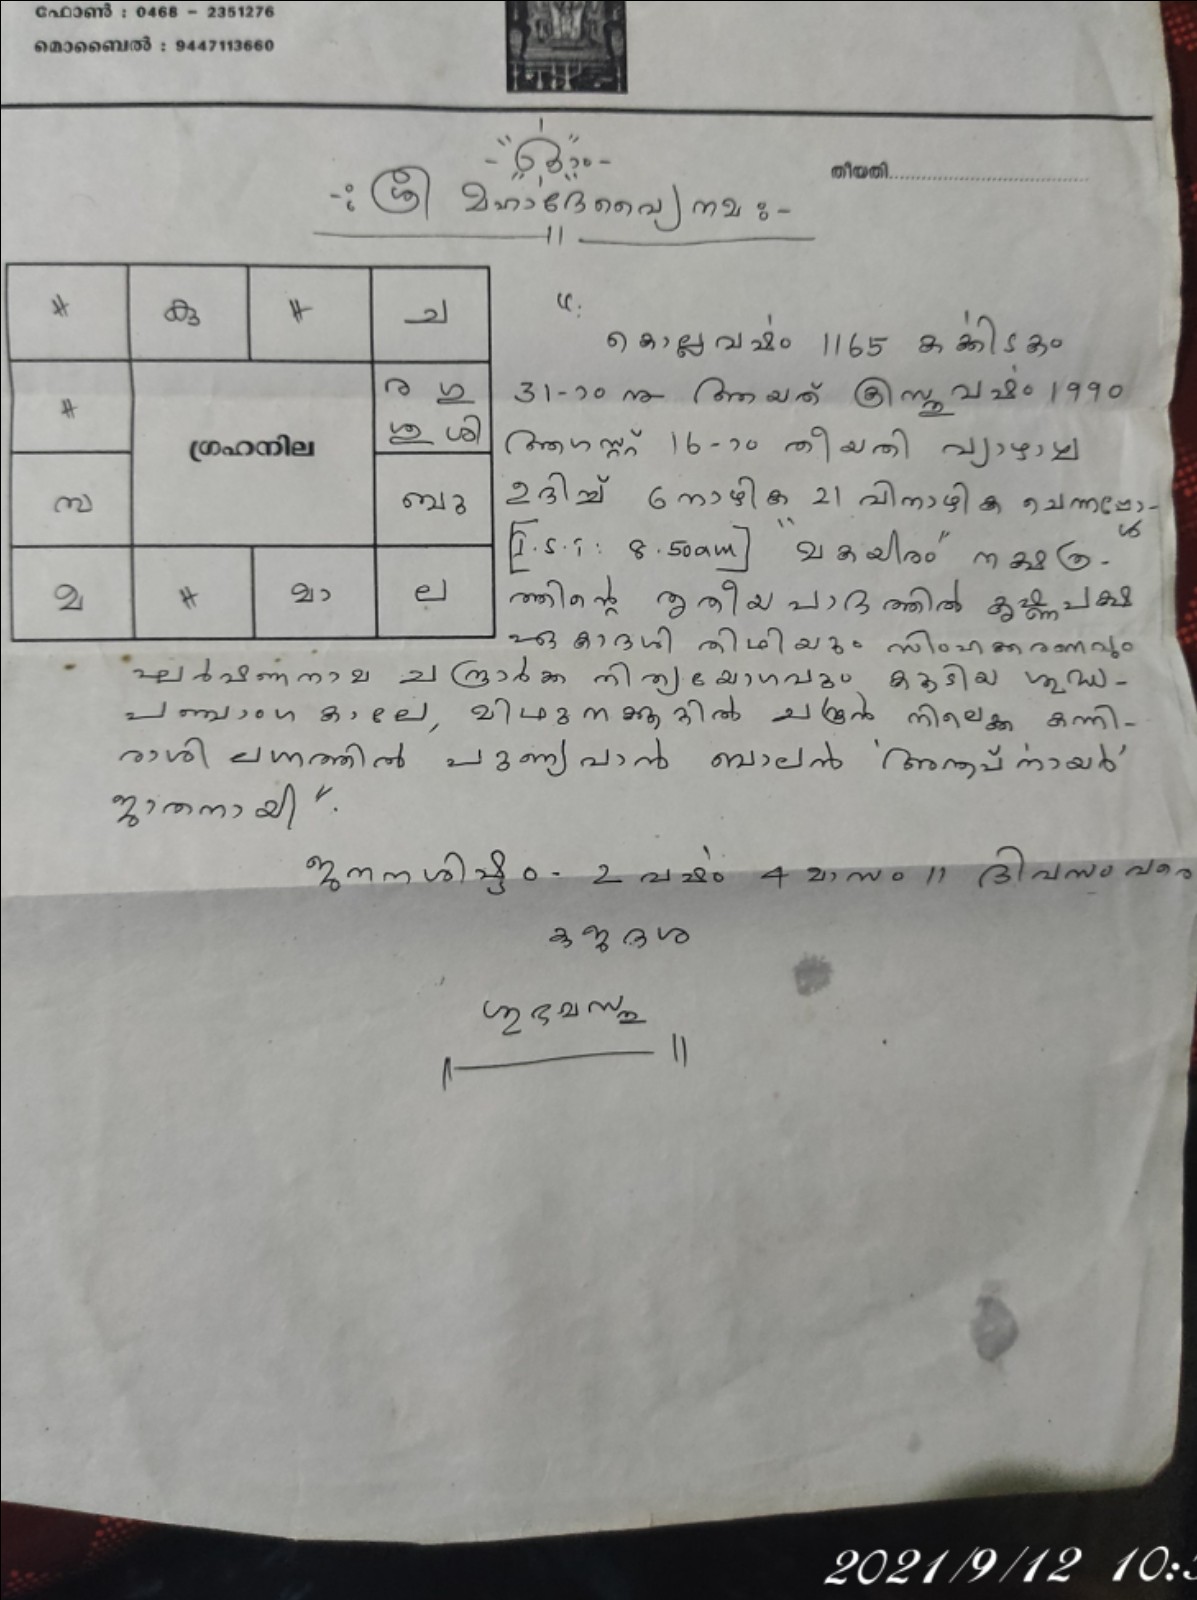 ഫോൺ : 0468 - 2351276
മൊബൈൽ : 9447113660
ഓം
തീയതി
-: ശ്രീ മഹാദേവ്യൈ നമ :-
# കു # ച
# ര ഗു
ശു ശി
ഗ്രഹനില
സ ബു
മ # മാ ല
കൊല്ലവർഷം 1165 കർക്കിടകം
31-ാം നു ആയത് ക്രിസ്തുവർഷം 1990
ആഗസ്റ്റ് 16-ാം തീയതി വ്യാഴാഴ്ച
ഉദിച്ച് 6 നാഴിക 21 വിനാഴിക ചെന്നപ്പോൾ
[I.S.T: 8.50am] "മകയിരം" നക്ഷത്ര-
ത്തിന്റെ തൃതീയ പാദത്തിൽ കൃഷ്ണപക്ഷ
ഏകാദശി തിഥിയും സിംഹക്കരണവും
ഹർഷണനാമ ചന്ദ്രാർക്ക നിത്യയോഗവും കൂടിയ ശുദ്ധ-
പഞ്ചാംഗ കാലേ, മിഥുനക്കൂറിൽ ചന്ദ്രൻ നിലെക്ക കന്നി-
രാശി ലഗ്നത്തിൽ പുണ്യവാൻ ബാലൻ നായർ'
ജാതനായി".
ജനനശിഷ്ടം - 2 വർഷം 4 മാസം 11 ദിവസം വരെ
കുജദശ
ശുഭമസ്തു
2021/9/12 10: